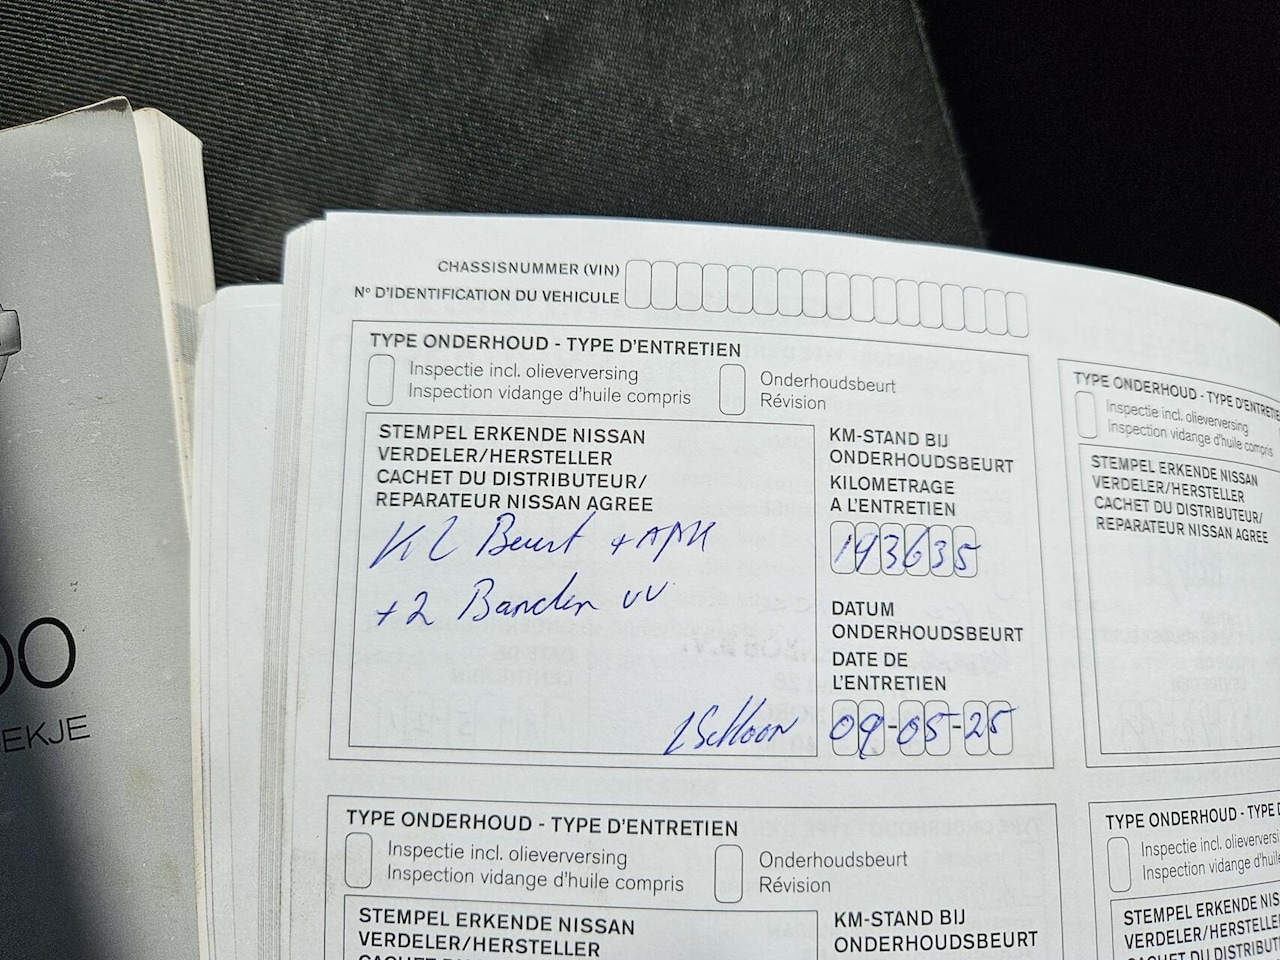 00
EKJE
CHASSISNUMMER (VIN)
Nº D'IDENTIFICATION DU VEHICULE
TYPE ONDERHOUD - TYPE D'ENTRETIEN
Inspectie incl. olieverversing
Inspection vidange d'huile compris
Onderhoudsbeurt
Révision
STEMPEL ERKENDE NISSAN
VERDELER/HERSTELLER
CACHET DU DISTRIBUTEUR/
REPARATEUR NISSAN AGREE
Kl Beurt + APK
+2 Banden vv
KM-STAND BIJ
ONDERHOUDSBEURT
KILOMETRAGE
A L'ENTRETIEN
193635
DATUM
ONDERHOUDSBEURT
DATE DE
L'ENTRETIEN
09-05-25
TYPE ONDERHOUD - TYPE D'ENTRETIE
Inspectie incl. olieverversing
Inspection vidange d'huile compris
STEMPEL ERKENDE NISSAN
VERDELER/HERSTELLER
CACHET DU DISTRIBUTEUR/
REPARATEUR NISSAN AGREE
TYPE ONDERHOUD - TYPE D'ENTRETIEN
Inspectie incl. olieverversing
Inspection vidange d'huile compris
Onderhoudsbeurt
Révision
STEMPEL ERKENDE NISSAN
VERDELER/HERSTELLER
KM-STAND BIJ
ONDERHOUDSBEURT
TYPE ONDERHOUD - TYPE
Inspectie incl. olieversi
Inspection vidange d'huile
STEMPEL ERKENDE NIS
VERDELER/HERSTELLE
CACHET DU DISTRIBUT